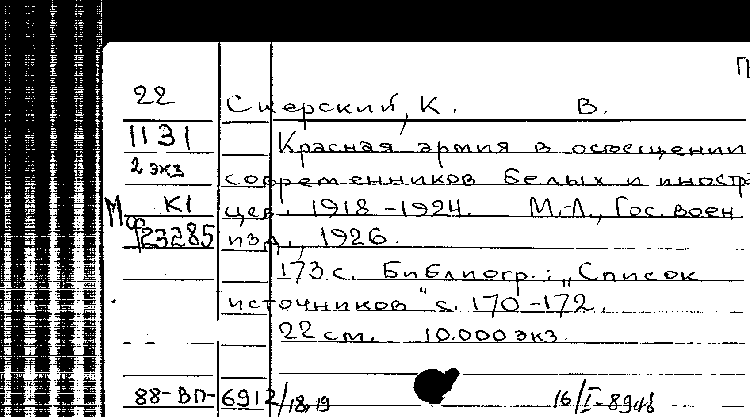 П
22 Сперский, К. В.
1131 Красная армия в освещении
2 экз современников белых и иностр
Мф К1 цев. 1918-1924. М.-Л., Гос. воен
23285 изд., 1926.
173 с. Библиогр.: „Список
источников" с. 170-172.
22 см. 10.000 экз.
88-ВП-6912/18,19 16/I-89